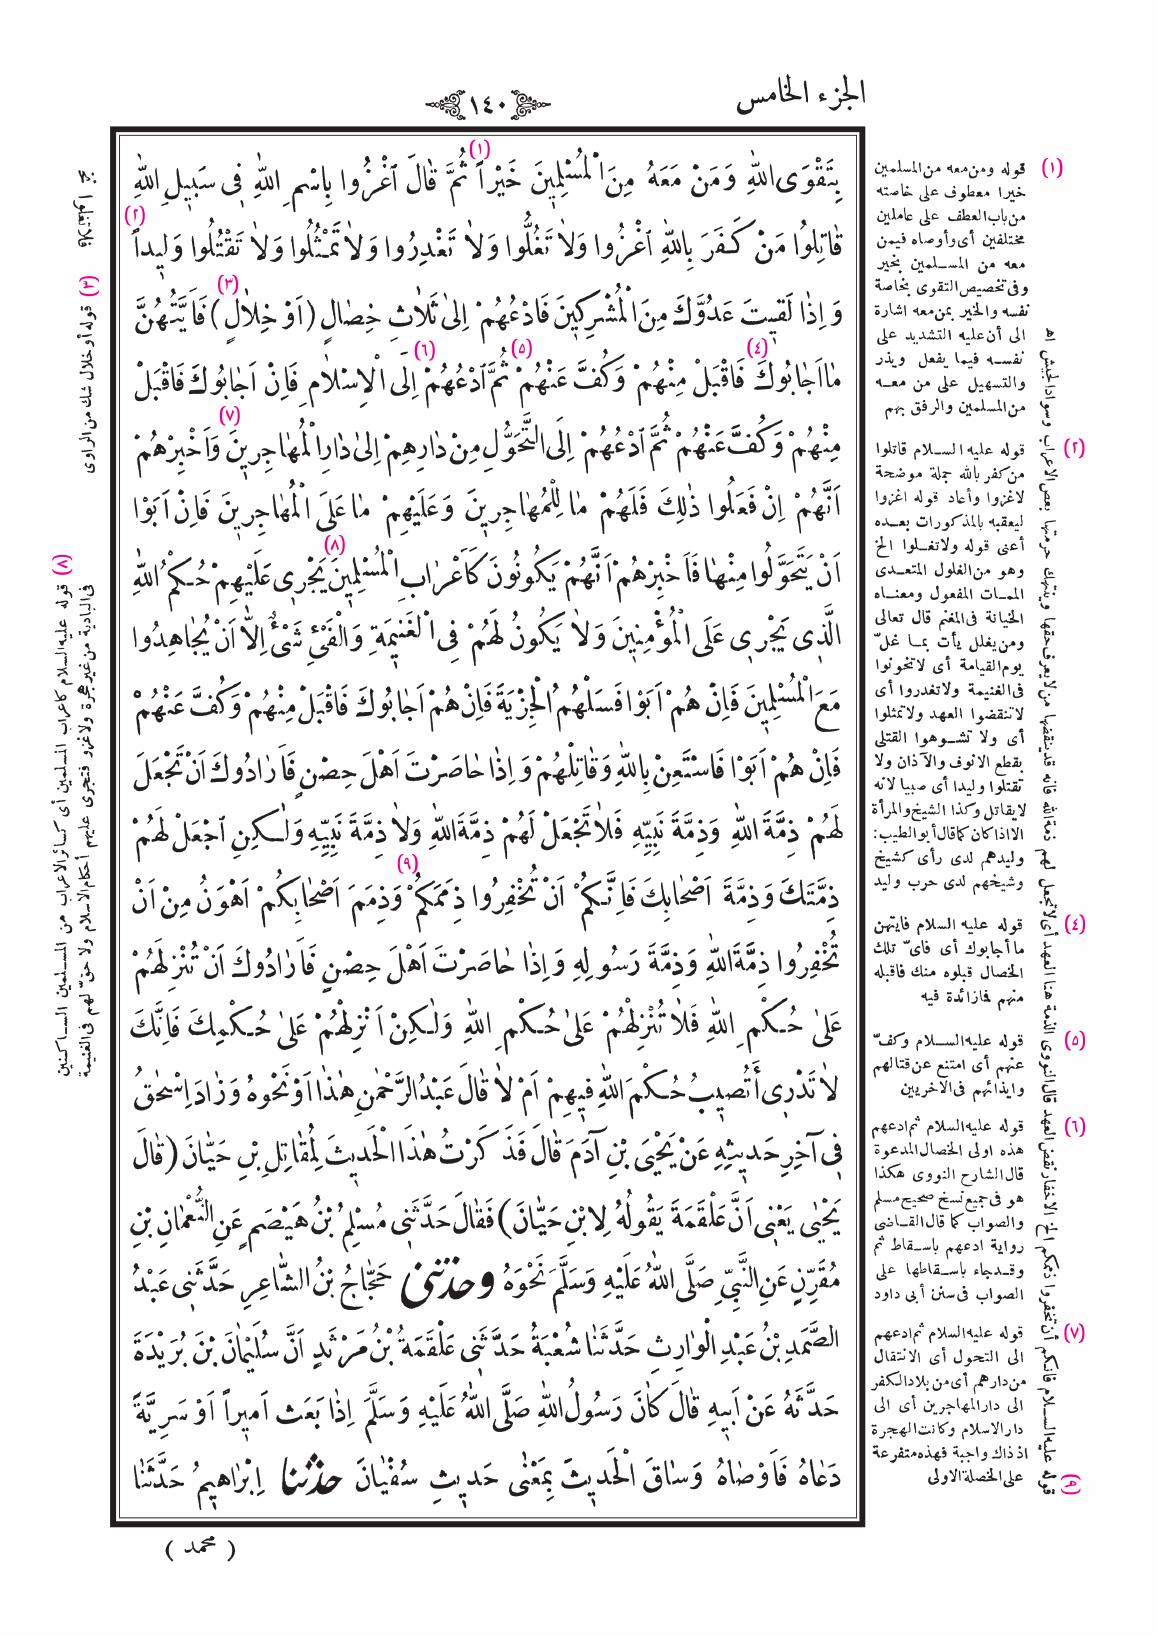 الجزء الخامس
١٤٠
بِتَقْوَى اللهِ وَمَنْ مَعَهُ مِنَ الْمُسْلِمِينَ خَيْراً (١) ثُمَّ قَالَ اَغْزُوا بِاسْمِ اللهِ فِى سَبِيلِ اللهِ
قَاتِلُوا مَنْ كَفَرَ بِاللهِ اَغْزُوا وَلاَ تَغُلُّوا وَلاَ تَغْدِرُوا وَلاَ تَمْثُلُوا وَلاَ تَقْتُلُوا وَلِيداً (٢)
وَإِذَا لَقِيتَ عَدُوَّكَ مِنَ الْمُشْرِكِينَ فَادْعُهُمْ اِلىٰ ثَلاَثِ خِصَالٍ (اَوْ خِلاَلٍ) (٣) فَاَيَّتُهُنَّ
مَا اَجَابُوكَ (٤) فَاقْبَلْ مِنْهُمْ وَكُفَّ عَنْهُمْ (٥) ثُمَّ اَدْعُهُمْ (٦) اِلَى الْاِسْلاَمِ فَاِنْ اَجَابُوكَ فَاقْبَلْ
مِنْهُمْ وَكُفَّ عَنْهُمْ ثُمَّ اَدْعُهُمْ اِلَى التَّحَوُّلِ مِنْ دَارِهِمْ اِلىٰ دَارِ الْمُهَاجِرِينَ (٧) وَاَخْبِرْهُمْ
اَنَّهُمْ اِنْ فَعَلُوا ذٰلِكَ فَلَهُمْ مَا لِلْمُهَاجِرِينَ وَعَلَيْهِمْ مَا عَلَى الْمُهَاجِرِينَ فَاِنْ اَبَوْا
اَنْ يَتَحَوَّلُوا مِنْهَا فَاَخْبِرْهُمْ اَنَّهُمْ يَكُونُونَ كَاَعْرَابِ الْمُسْلِمِينَ (٨) يَجْرِى عَلَيْهِمْ حُكْمُ اللهِ
الَّذِى يَجْرِى عَلَى الْمُؤْمِنِينَ وَلاَ يَكُونُ لَهُمْ فِى الْغَنِيمَةِ وَالْفَىْءِ شَىْءٌ اِلاَّ اَنْ يُجَاهِدُوا
مَعَ الْمُسْلِمِينَ فَاِنْ هُمْ اَبَوْا فَسَلْهُمُ الْجِزْيَةَ فَاِنْ هُمْ اَجَابُوكَ فَاقْبَلْ مِنْهُمْ وَكُفَّ عَنْهُمْ
فَاِنْ هُمْ اَبَوْا فَاسْتَعِنْ بِاللهِ وَقَاتِلْهُمْ وَإِذَا حَاصَرْتَ اَهْلَ حِصْنٍ فَاَرَادُوكَ اَنْ تَجْعَلَ
لَهُمْ ذِمَّةَ اللهِ وَذِمَّةَ نَبِيِّهِ فَلاَ تَجْعَلْ لَهُمْ ذِمَّةَ اللهِ وَلاَ ذِمَّةَ نَبِيِّهِ وَلٰكِنِ اجْعَلْ لَهُمْ
ذِمَّتَكَ وَذِمَّةَ اَصْحَابِكَ فَاِنَّكُمْ اَنْ تُخْفِرُوا ذِمَمَكُمْ (٩) وَذِمَمَ اَصْحَابِكُمْ اَهْوَنُ مِنْ اَنْ
تُخْفِرُوا ذِمَّةَ اللهِ وَذِمَّةَ رَسُولِهِ وَإِذَا حَاصَرْتَ اَهْلَ حِصْنٍ فَاَرَادُوكَ اَنْ تُنْزِلَهُمْ
عَلىٰ حُكْمِ اللهِ فَلاَ تُنْزِلْهُمْ عَلىٰ حُكْمِ اللهِ وَلٰكِنْ اَنْزِلْهُمْ عَلىٰ حُكْمِكَ فَاِنَّكَ
لاَ تَدْرِى أَتُصِيبُ حُكْمَ اللهِ فِيهِمْ اَمْ لاَ قَالَ عَبْدُ الرَّحْمٰنِ هٰذَا اَوْ نَحْوَهُ وَزَادَ اِسْحٰقُ
فِى آخِرِ حَدِيثِهِ عَنْ يَحْيَى بْنِ آدَمَ قَالَ فَذَكَرْتُ هٰذَا الْحَدِيثَ لِمُقَاتِلِ بْنِ حَيَّانَ (قَالَ
يَحْيٰى يَعْنِى اَنَّ عَلْقَمَةَ يَقُولُهُ لِابْنِ حَيَّانَ) فَقَالَ حَدَّثَنِى مُسْلِمُ بْنُ هَيْصَمٍ عَنِ النُّعْمَانِ بْنِ
مُقَرِّنٍ عَنِ النَّبِىِّ صَلَّى اللهُ عَلَيْهِ وَسَلَّمَ نَحْوَهُ وحدثنى حَجَّاجُ بْنُ الشَّاعِرِ حَدَّثَنِى عَبْدُ
الصَّمَدِ بْنُ عَبْدِ الْوَارِثِ حَدَّثَنَا شُعْبَةُ حَدَّثَنِى عَلْقَمَةُ بْنُ مَرْثَدٍ اَنَّ سُلَيْمَانَ بْنَ بُرَيْدَةَ
حَدَّثَهُ عَنْ اَبِيهِ قَالَ كَانَ رَسُولُ اللهِ صَلَّى اللهُ عَلَيْهِ وَسَلَّمَ اِذَا بَعَثَ اَمِيراً اَوْ سَرِيَّةً
دَعَاهُ فَاَوْصَاهُ وَسَاقَ الْحَدِيثَ بِمَعْنٰى حَدِيثِ سُفْيَانَ حدثنا اِبْرَاهِيمُ حَدَّثَنَا
( محمد )
(١) قوله ومن معه من المسلمين
خيرا معطوف على خاصته
من باب العطف على عاملين
مختلفين أى وأوصاه فيمن
معه من المسلمين بخير
وفى تخصيص التقوى بخاصة
نفسه والخير بمن معه اشارة
الى أن عليه التشديد على
نفسه فيما يفعل ويذر
والتسهيل على من معه
من المسلمين والرفق بهم
(٢) قوله عليه السلام قاتلوا
من كفر بالله جملة موضحة
لاغزوا وأعاد قوله اغزوا
ليعقبه بالمذكورات بعده
أعنى قوله ولا تغلوا الخ
وهو من الغلول المتعدى
الممات المفعول ومعناه
الخيانة فى المغنم قال تعالى
ومن يغلل يأت بما غلّ
يوم القيامة أى لا تخونوا
فى الغنيمة ولا تغدروا أى
لا تنقضوا العهد ولا تمثلوا
أى ولا تشوهوا القتلى
بقطع الانوف والآذان ولا
تقتلوا وليدا أى صبيا لانه
لا يقاتل وكذا الشيخ والمرأة
الا اذا كان كما قال أبو الطيب:
وليدهم لدى رأى كشيخ
وشيخهم لدى حرب وليد
(٤) قوله عليه السلام فايتهن
ما أجابوك أى فاىّ تلك
الخصال قبلوه منك فاقبله
منهم فما زائدة فيه
(٥) قوله عليه السلام وكفّ
عنهم أى امتنع عن قتالهم
وايذائهم فى الاخريين
(٦) قوله عليه السلام ثم ادعهم
هذه اولى الخصال المدعوة
قال الشارح النووى هكذا
هو فى جميع نسخ صحيح مسلم
والصواب كما قال القاضى
رواية ادعهم باسقاط ثم
وقد جاء باسقاطها على
الصواب فى سنن أبى داود
(٧) قوله عليه السلام ثم ادعهم
الى التحول أى الانتقال
من دارهم أى من بلاد الكفر
الى دار المهاجرين أى الى
دار الاسلام وكانت الهجرة
اذ ذاك واجبة فهذه متفرعة
على الخصلة الاولى
(٩) قوله عليه السلام فانكم أن تخفروا ذممكم الخ الاخفار نقض العهد قال النووى الذمة هنا العهد أى لا تجعل لهم ذمة الله فانه قد ينقضها من لا يعرف حقها وينتهك حرمتها بعض الاعراب وسواد الجيش اه
(٣) قوله أو خلال شك من الراوى
(٨) قوله عليه السلام كاعراب المسلمين أى كسائر الاعراب من المسلمين الساكنين
فى البادية من غير هجرة ولا غزو فتجرى عليهم أحكام الاسلام ولا حقّ لهم فى الغنيمة